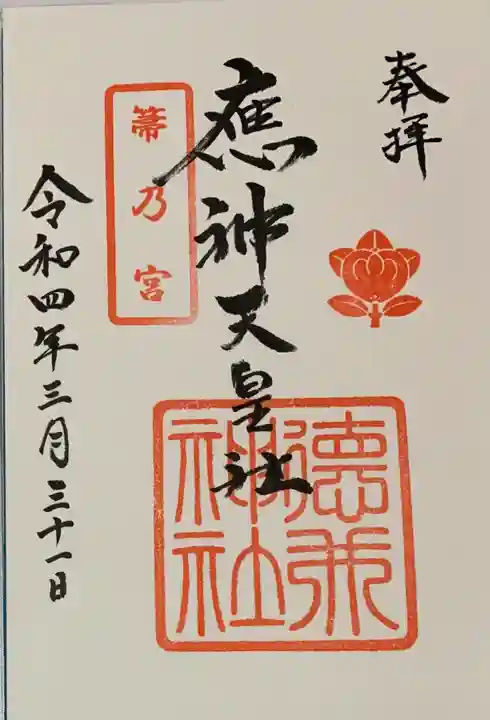 奉拝
應神天皇社
箒乃宮
令和四年三月三十一日
神社